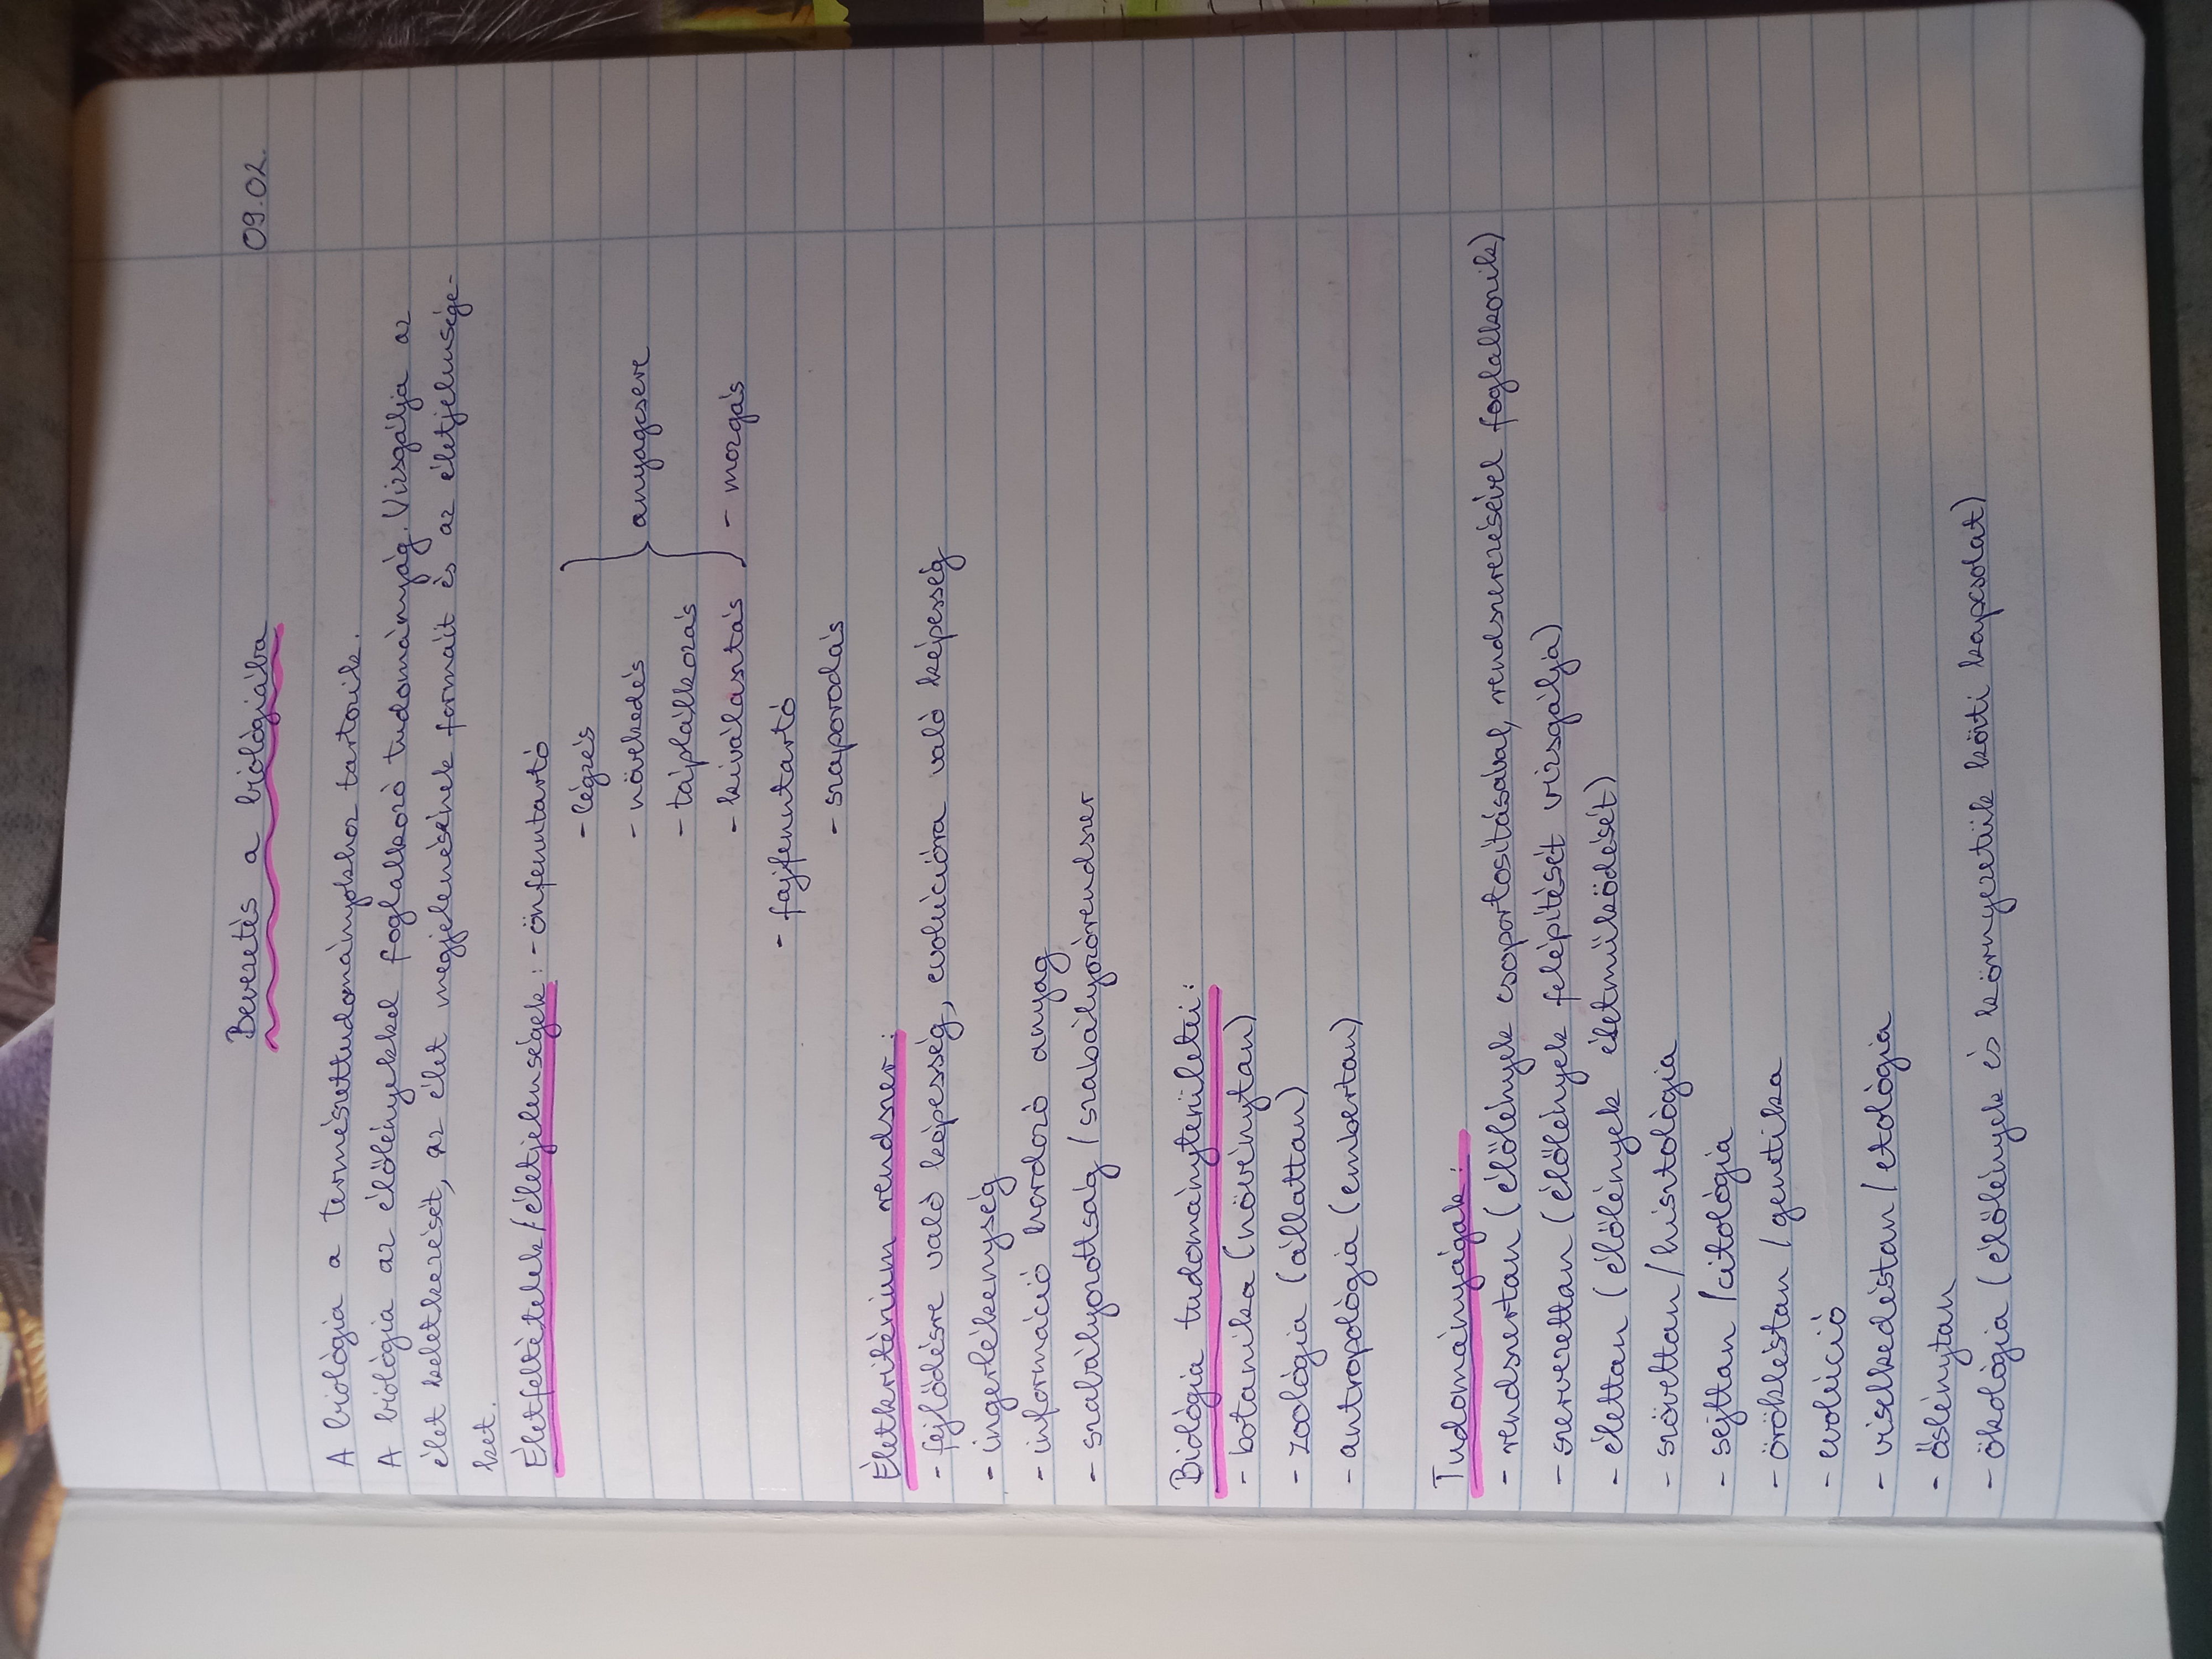 Bevezetés a biológiába 09.02.
A biológia a természettudományokhoz tartozik.
A biológia az élőlényekkel foglalkozó tudományág. Vizsgálja az
élet keletkezését, az élet megjelenésének formáit és az életjelensége-
ket.
Életfeltételek/életjelenségek: - önfenntartó
- légzés
- növekedés } anyagcsere
- táplálkozás
- kiválasztás - mozgás
- fajfenntartó
- szaporodás
Életkritérium rendszer:
- fejlődésre való képesség, evolúcióra való képesség
- ingerlékenység
- információ hordozó anyag
- szabályozottság / szabályozórendszer
Biológia tudományterületei:
- botanika (növénytan)
- zoológia (állattan)
- antropológia (embertan)
Tudományágak:
- rendszertan (élőlények csoportosításával, rendszerezésével foglalkozik)
- szervezettan (élőlények felépítését vizsgálja)
- élettan (élőlények életműködését)
- szövettan / hisztológia
- sejttan / citológia
- örökléstan / genetika
- evolúció
- viselkedéstan / etológia
- őslénytan
- ökológia (élőlények és környezetük közti kapcsolat)